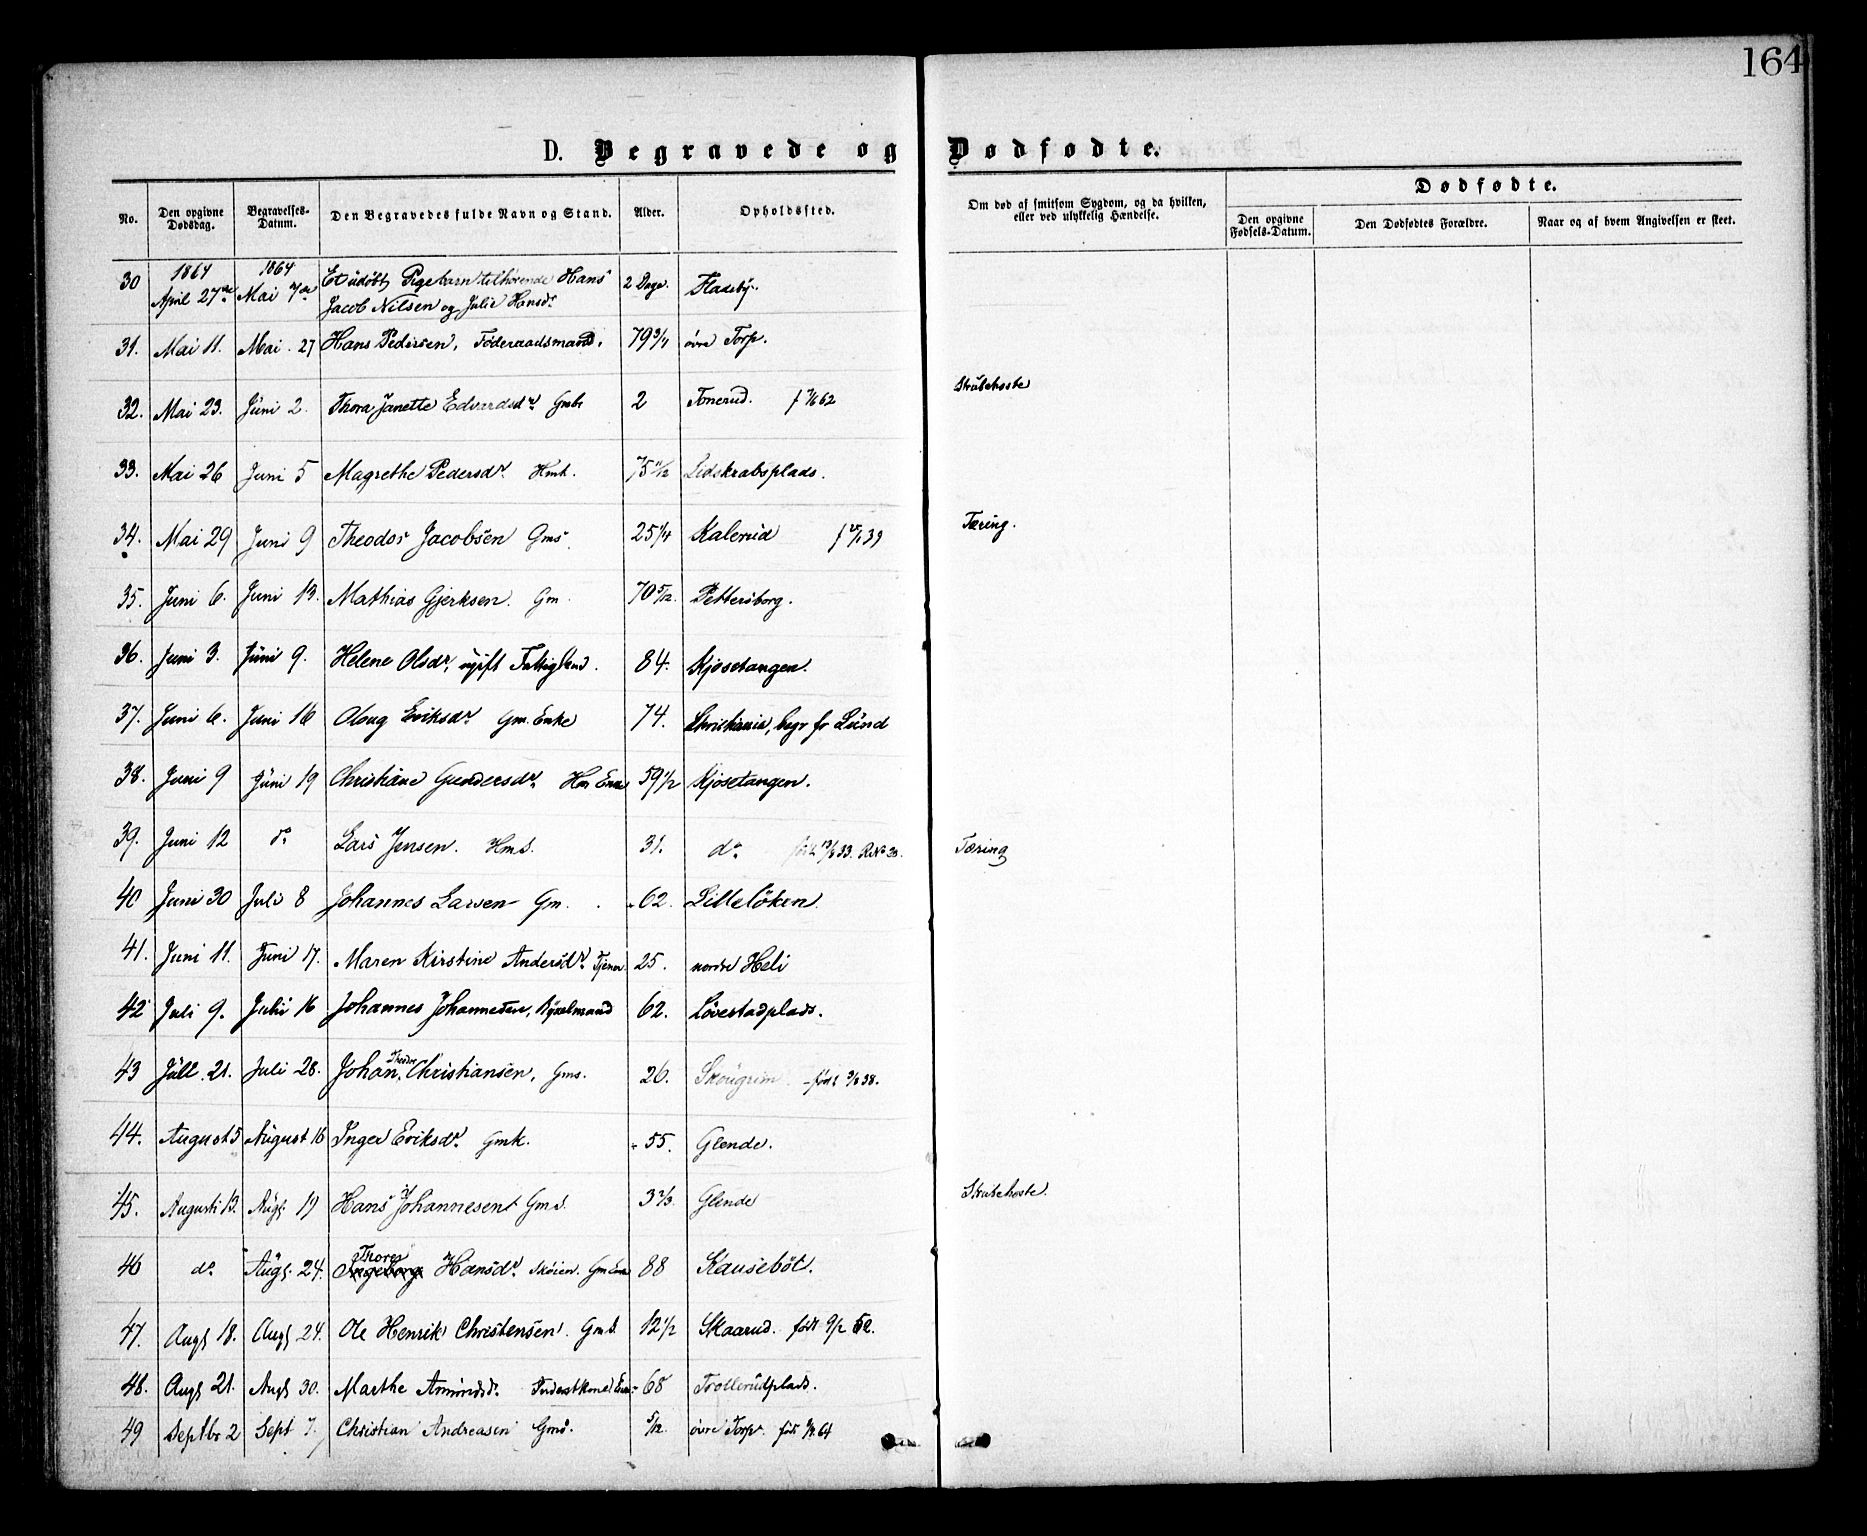 164
D. Begravede og Dødfødte.
No. Den opgivne Dødsdag. Begravelses-Datum. Den Begravedes fulde Navn og Stand. Alder. Opholdssted. Om død af smitsom Sygdom, og da hvilken, eller ved ulykkelig Hændelse. Dødfødte.
Den opgivne Fødsels-Datum. Den Dødfødtes Forældre. Naar og af hvem Angivelsen er skeet.
1864 1864
30 April 27de Mai 7de Et udöbt Pigebarn tilhörende Hans 2 Dage. Fladeby.
Jacob Nilsen og Julie Hansdr
31. Mai 11. Mai 27 Hans Pedersen, Föderaadsmand. 79 3/4 övre Torp.
32. Mai 23. Juni 2. Thora Janette Edvardsdr. Gmb 2 Tonerud. Strubehoste
33. Mai 26 Juni 5 Magrethe Pedersdr. Hmk. 75 Lidskrabsplads.
34. Mai 29 Juni 9 Theodor Jacobsen Gms. 25 1/4 Kalerud Tæring.
35. Juni 6. Juni 13. Mathias Gjerksen. Gm. 70 5/12. Pettersborg.
36. Juni 3. Juni 9. Helene Olsdr. ugift Fattiglem. 84. Kjosetangen.
37. Juni 6. Juni 16 Oloug Eriksdr Gm. Enke 74. Christiania, begr fr Lund
38. Juni 9 Juni 19 Christiane Gundersdr. Hm Enke 59 1/2 Kjosetangen.
39. Juni 12 do Lars Jensen. HmS. 31. do. Tæring
40 Juni 30 Juli 8 Johannes Larsen Gm. 62. Lillelöken.
41. Juni 11. Juni 17. Maren Kirstine Andersdr. Tjener 25. nordre Heli
42 Juli 9. Juli 16 Johannes Johannesen, 62. Lövestadplads.
43 Juli 21. Juli 28. Johan Theodor Christiansen, Gms. 26. Skougrim. födt 38.
44. August 5 August 16 Inger Eriksdr. Gmk. 55. Glende.
45. August 13. Aug. 19 Hans Johannesen GmS. 3 2/3. Glende Strubehoste.
46 do. Aug. 24. Thore Ingeborg Hansdr. Sköien. Gm Enke 88 Kauseböl.
47. Aug 18. Aug 24. Ole Henrik Christensen. GmS. 12 1/2 Skaarud. födt 9/2 52.
48. Aug 21. Aug 30. Marthe Amundsdr. 68 Trollerudplads.
49 Septbr 2 Sept 7. Christian Andreasen GmS. 5/12. övre Torp. födt 64